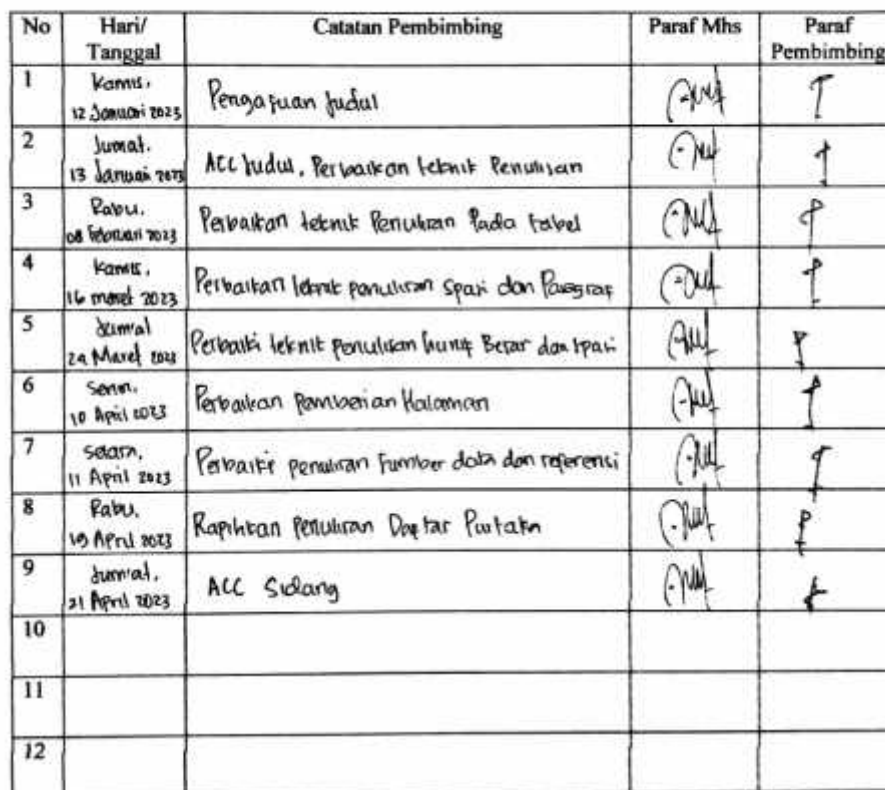 No Hari/ Tanggal Catatan Pembimbing Paraf Mhs Paraf Pembimbing
1 Kamis, 12 Januari 2023 Pengajuan Judul
2 Jumat, 13 Januari 2023 ACC Judul, Perbaikan teknik Penulisan
3 Rabu, 08 Februari 2023 Perbaikan teknik Penulisan Pada tabel
4 Kamis, 16 maret 2023 Perbaikan teknik penulisan spasi dan Paragraf
5 Jum'at 24 Maret 2023 Perbaiki teknik penulisan huruf Besar dan spasi
6 Senin, 10 April 2023 Perbaikan Pemberian Halaman
7 Selasa, 11 April 2023 Perbaiki penulisan sumber data dan referensi
8 Rabu, 19 April 2023 Rapihkan Penulisan Daftar Pustaka
9 Jum'at, 21 April 2023 ACC Sidang
10
11
12